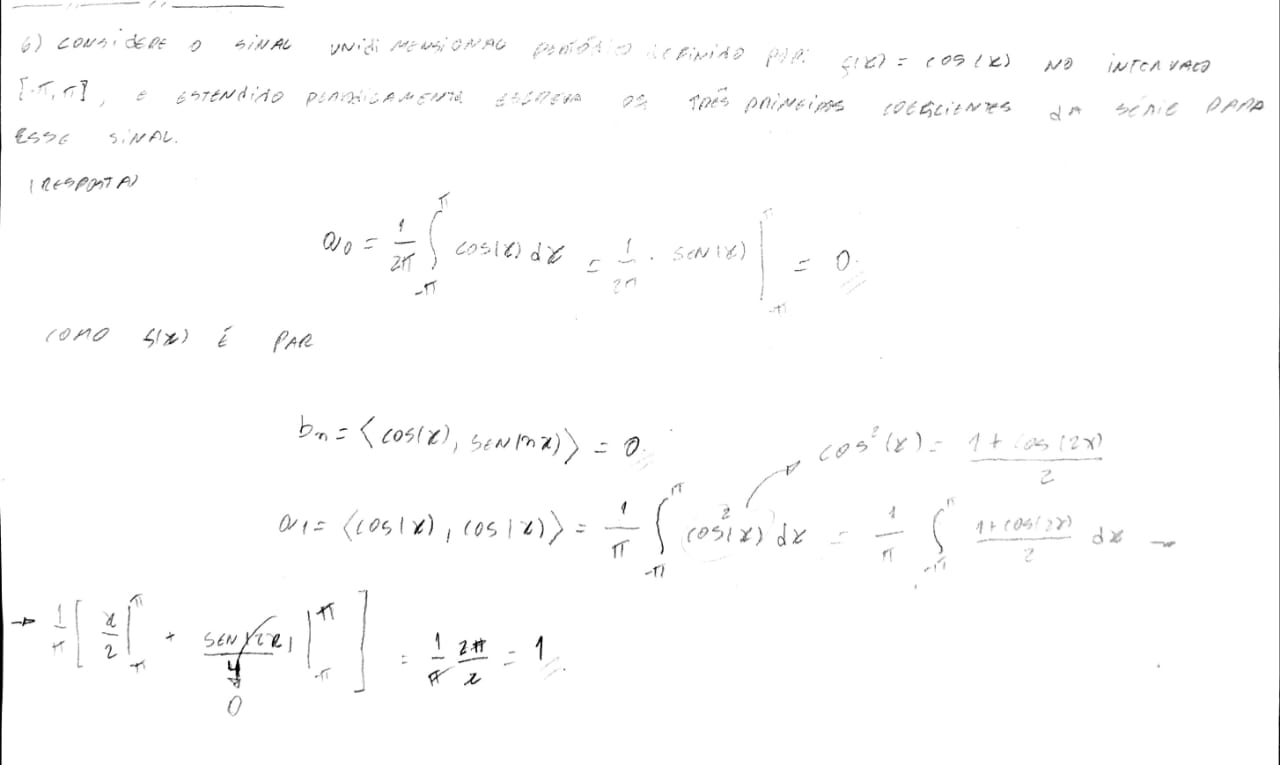 6) CONSIDERE O SINAL UNIDIMENSIONAL PERIÓDICO DEFINIDO POR: f(x) = cos(x) NO INTERVALO
[-π, π], E ESTENDIDO PERIODICAMENTE ESCREVA OS TRÊS PRIMEIROS COEFICIENTES DA SÉRIE PARA
ESSE SINAL.
(RESPOSTA)
a₀ = 1/2π ∫_{-π}^{π} cos(x) dx = 1/2π · SEN(x) |_{-π}^{π} = 0
COMO f(x) É PAR
bₙ = ⟨cos(x), SEN(nx)⟩ = 0
cos²(x) = (1 + cos(2x))/2
a₁ = ⟨cos(x), cos(x)⟩ = 1/π ∫_{-π}^{π} cos²(x) dx = 1/π ∫_{-π}^{π} (1 + cos(2x))/2 dx →
→ 1/π [ x/2 |_{-π}^{π} + SEN(2x)/4 |_{-π}^{π} ] = 1/π 2π/2 = 1
0